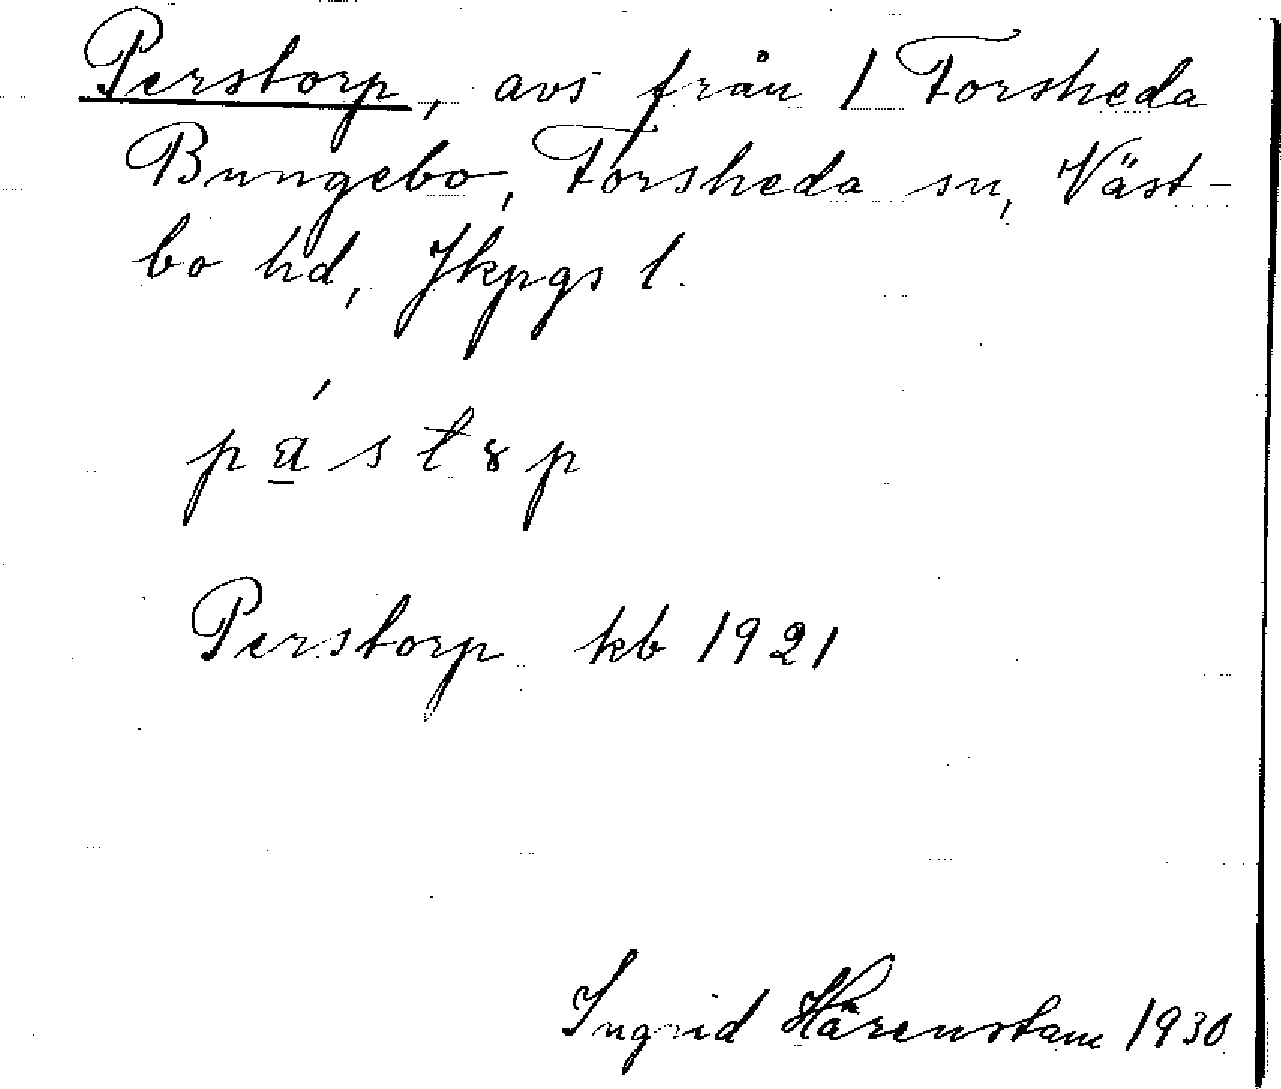 Perstorp, avs från 1 Forsheda
Bungebo, Forsheda sn, Väst-
bo hd, Jkpgs l.
Perstorp kb 1921
Ingrid Härenstam 1930